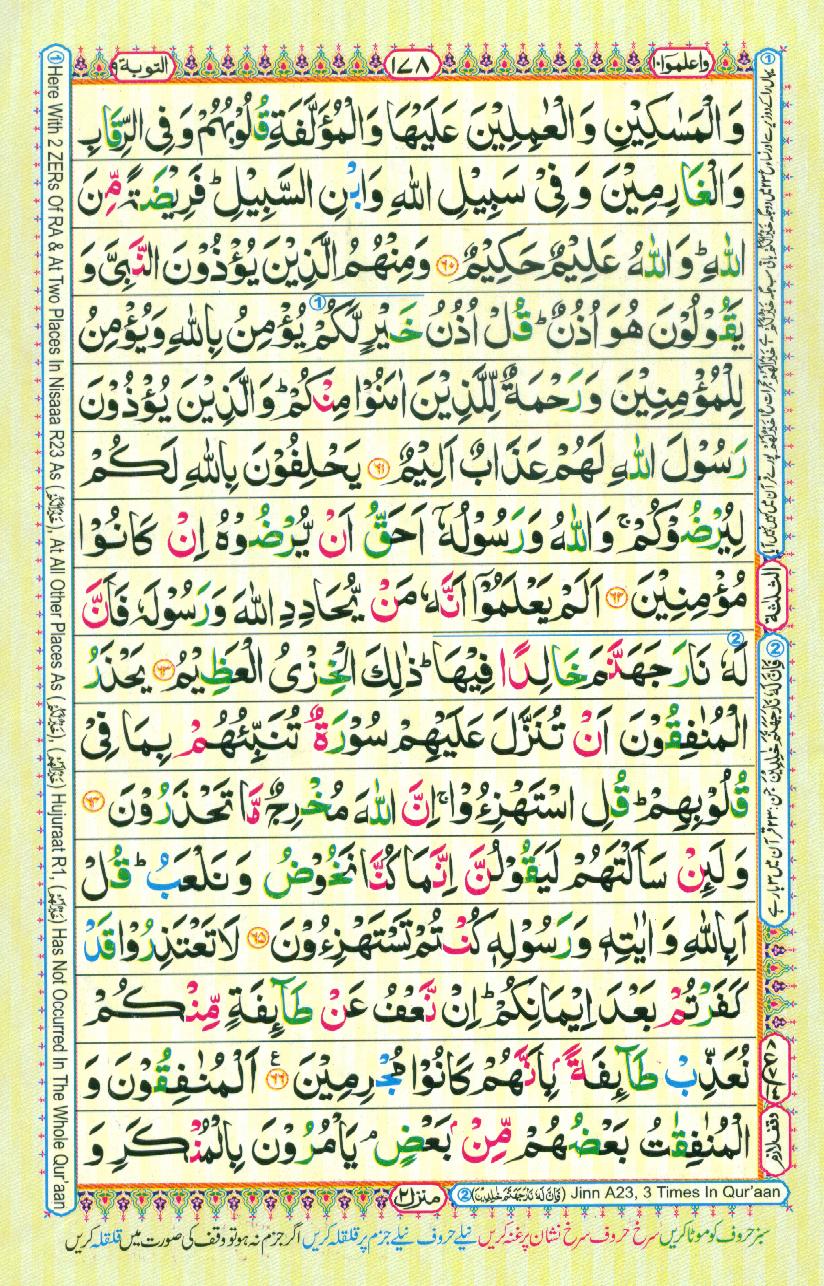 واعلموا ١٠
١٧٨
التوبة ٩
وَالْمَسٰكِيْنِ وَالْعٰمِلِيْنَ عَلَيْهَا وَالْمُؤَلَّفَةِ قُلُوْبُهُمْ وَفِى الرِّقَابِ
وَالْغَارِمِيْنَ وَفِىْ سَبِيْلِ اللّٰهِ وَابْنِ السَّبِيْلِ ؕ فَرِيْضَةً مِّنَ
اللّٰهِ ؕ وَاللّٰهُ عَلِيْمٌ حَكِيْمٌ ﴿٦٠﴾ وَمِنْهُمُ الَّذِيْنَ يُؤْذُوْنَ النَّبِىَّ وَ
يَقُوْلُوْنَ هُوَ اُذُنٌ ؕ قُلْ اُذُنُ خَيْرٍ لَّكُمْ يُؤْمِنُ بِاللّٰهِ وَيُؤْمِنُ
لِلْمُؤْمِنِيْنَ وَرَحْمَةٌ لِّلَّذِيْنَ اٰمَنُوْا مِنْكُمْ ؕ وَالَّذِيْنَ يُؤْذُوْنَ
رَسُوْلَ اللّٰهِ لَهُمْ عَذَابٌ اَلِيْمٌ ﴿٦١﴾ يَحْلِفُوْنَ بِاللّٰهِ لَكُمْ
لِيُرْضُوْكُمْ ۚ وَاللّٰهُ وَرَسُوْلُهٗۤ اَحَقُّ اَنْ يُّرْضُوْهُ اِنْ كَانُوْا
مُؤْمِنِيْنَ ﴿٦٢﴾ اَلَمْ يَعْلَمُوْۤا اَنَّهٗ مَنْ يُّحَادِدِ اللّٰهَ وَرَسُوْلَهٗ فَاَنَّ
لَهٗ نَارَ جَهَنَّمَ خَالِدًا فِيْهَا ؕ ذٰلِكَ الْخِزْىُ الْعَظِيْمُ ﴿٦٣﴾ يَحْذَرُ
الْمُنٰفِقُوْنَ اَنْ تُنَزَّلَ عَلَيْهِمْ سُوْرَةٌ تُنَبِّئُهُمْ بِمَا فِىْ
قُلُوْبِهِمْ ؕ قُلِ اسْتَهْزِءُوْا ۚ اِنَّ اللّٰهَ مُخْرِجٌ مَّا تَحْذَرُوْنَ ﴿٦٤﴾
وَلَئِنْ سَاَلْتَهُمْ لَيَقُوْلُنَّ اِنَّمَا كُنَّا نَخُوْضُ وَنَلْعَبُ ؕ قُلْ
اَبِاللّٰهِ وَاٰيٰتِهٖ وَرَسُوْلِهٖ كُنْتُمْ تَسْتَهْزِءُوْنَ ﴿٦٥﴾ لَا تَعْتَذِرُوْا قَدْ
كَفَرْتُمْ بَعْدَ اِيْمَانِكُمْ ؕ اِنْ نَّعْفُ عَنْ طَآئِفَةٍ مِّنْكُمْ
نُعَذِّبْ طَآئِفَةًۢ بِاَنَّهُمْ كَانُوْا مُجْرِمِيْنَ ﴿٦٦﴾ اَلْمُنٰفِقُوْنَ وَ
الْمُنٰفِقٰتُ بَعْضُهُمْ مِّنْۢ بَعْضٍ ۘ يَاْمُرُوْنَ بِالْمُنْكَرِ وَ
الثلثة
وقف لازم
① Here With 2 ZERs Of RA & At Two Places In Nisaaa R23 As (خَيْرًا لَّكُمْ), At All Other Places As (خَيْرٌ لَّكُمْ), Hujuraat R1, Has Not Occurred In The Whole Qur'aan
منزل ٢
② (فَاِنَّ لَهٗ نَارَ جَهَنَّمَ خٰلِدِيْنَ) Jinn A23, 3 Times In Qur'aan
سبز حروف کو موٹا کریں سرخ حروف سرخ نشان پر غنہ کریں نیلے حروف نیلے جزم پر قلقلہ کریں اگر جزم نہ ہو تو وقف کی صورت میں قلقلہ کریں